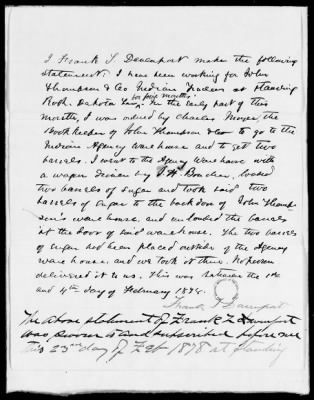 I Frank S Davenport make the following
statement: I have been working for John
Thompson & Co Indian Traders at Standing
for four months
Rock. Dakota Ter. In the early part of this
month, I was asked by Charles Moyer, the
Book keeper of John Thompson & Co to go to the
Indian Agency warehouse and to get two
barrels. I went to the Agency warehouse with
a wagon driven by Boucher, loaded
two barrels of sugar and took said two
barrels of sugar to the back door of John Thomp
son's warehouse, and unloaded the barrels
at the door of said warehouse. The two barrels
of sugar had been placed outside of the Agency
warehouse, and we took it there. No person
delivered it to us. This was between the 1st
and 4th day of February 1878.
Frank Davenport
The above statement of Frank Davenport
was sworn to and subscribed before me
this 23rd day of Feb 1878 at Standing